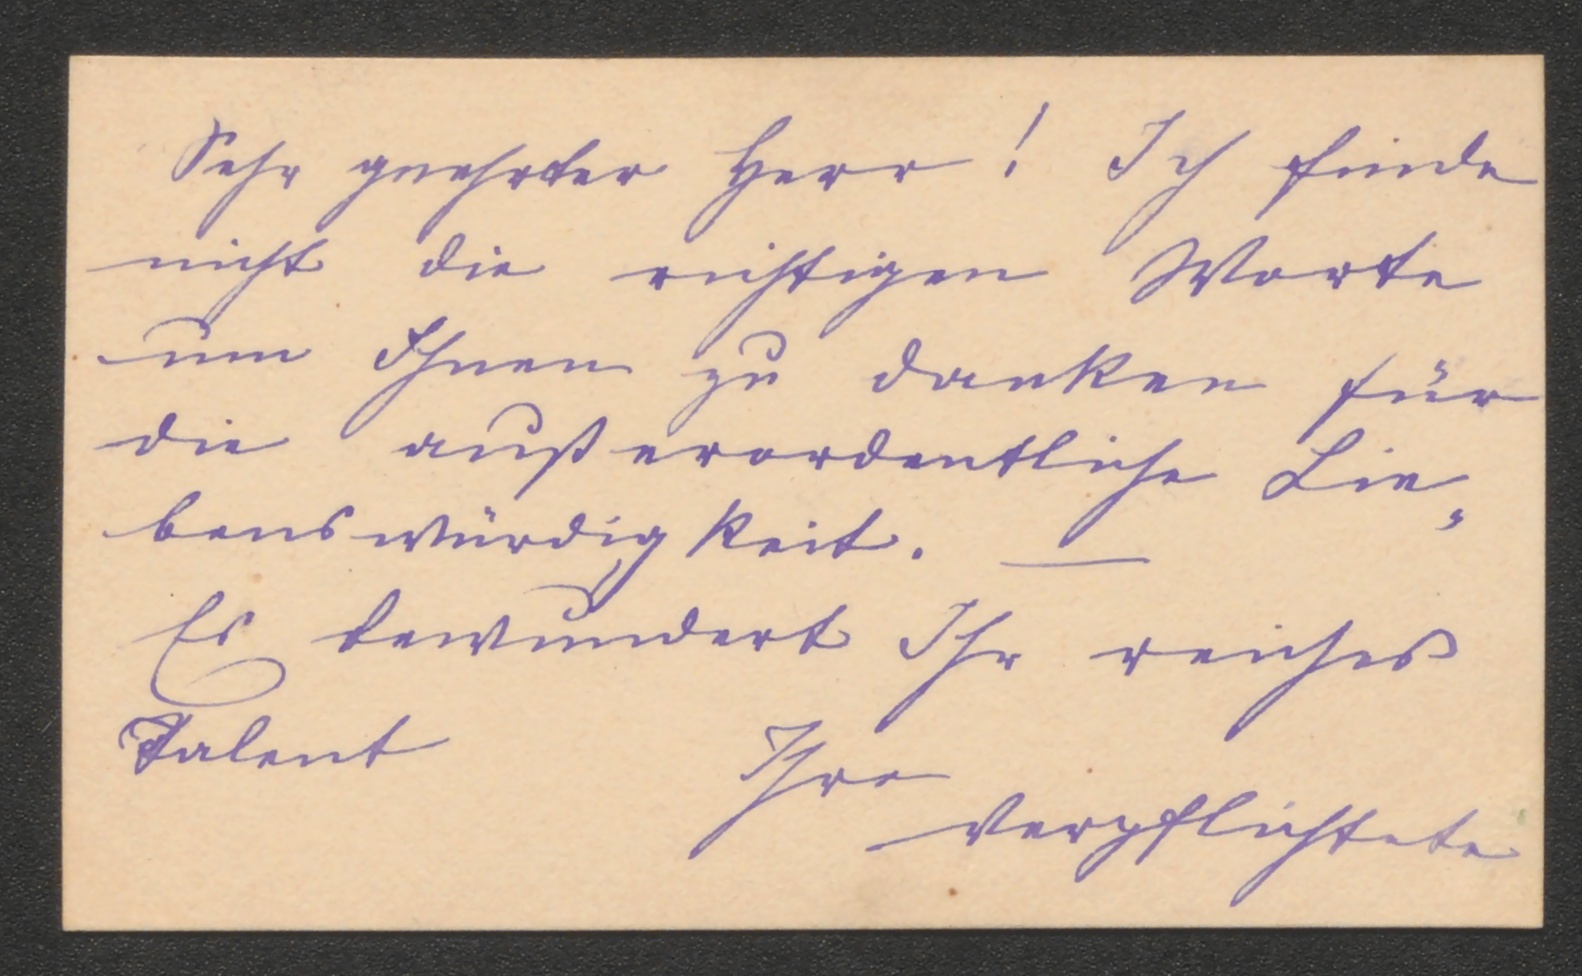 Sehr geehrter Herr! Ich finde
nicht die richtigen Worte
um Ihnen zu danken für
die außerordentliche Lie-
benswürdigkeit. —
Es bewundert Ihr reiches
Talent Ihre
verpflichtete